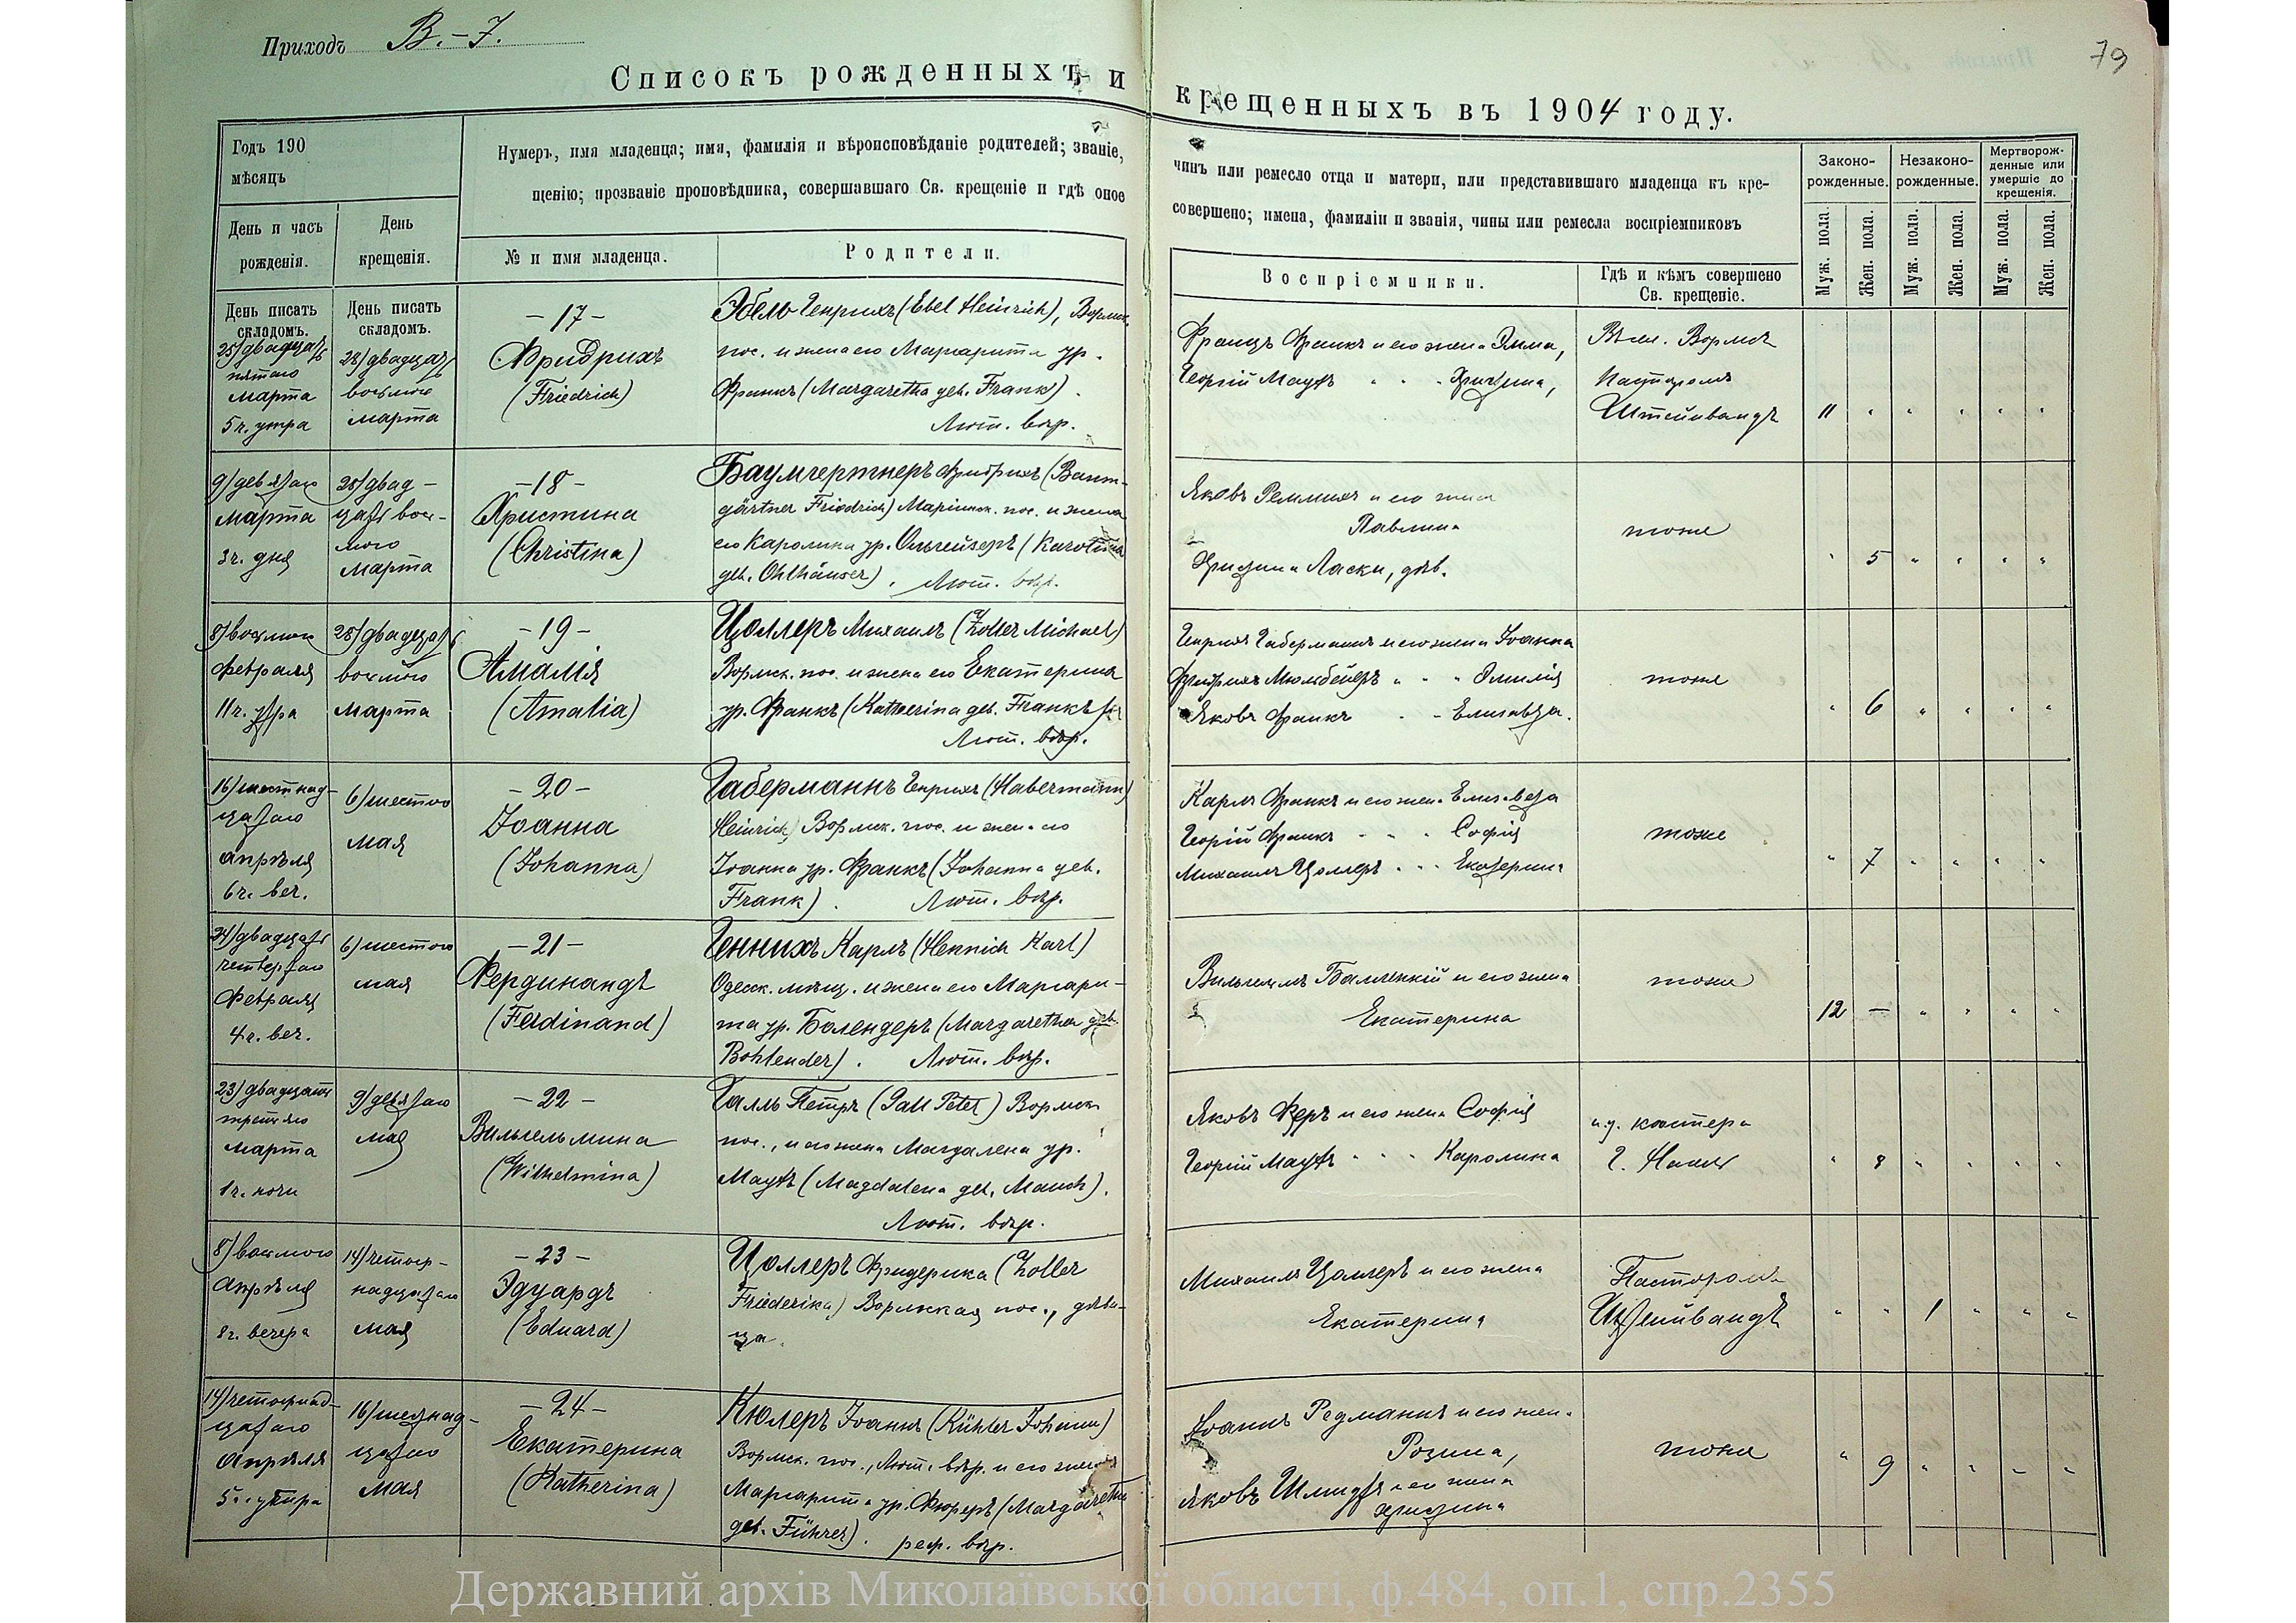 Приходъ В.-J.
79
Списокъ рожденныхъ и крещенныхъ въ 1904 году.
Годъ 190
мѣсяцъ
Нумеръ, имя младенца; имя, фамилія и вѣроисповѣданіе родителей; званіе, чинъ или ремесло отца и матери, или представившаго младенца къ кре-
щенію; прозваніе проповѣдника, совершавшаго Св. крещеніе и гдѣ оное совершено; имена, фамиліи и званія, чины или ремесла воспріемниковъ
Законо-
рожденные.
Незаконо-
рожденные.
Мертворож-
денные или
умершіе до
крещенія.
День и часъ
рожденія.
День
крещенія.
№ и имя младенца.
Родители.
Воспріемники.
Гдѣ и кѣмъ совершено
Св. крещеніе.
Муж. пола.
Жен. пола.
Муж. пола.
Жен. пола.
Муж. пола.
Жен. пола.
День писать
складомъ.
День писать
складомъ.
25/двадцать
пятаго
марта
5 ч. утра
28/двадцать
восьмого
марта
-17-
Фридрихъ
(Friedrich)
Эбель Генрихъ (Ebel Heinrich), Вормск.
пос. и жена его Маргарита ур.
Франкъ (Margaretha geb. Frank).
Лют. вѣр.
Францъ Франкъ и его жена Эмма,
Георгій Маухъ " " Христина,
Вормсъ
Пасторомъ
Штейнвандъ
11
9/девятаго
марта
3 ч. дня
28/двад-
цать вось-
мого
марта
-18-
Христина
(Christina)
Баумгертнеръ Фридрихъ (Baum-
gärtner Friedrich) Маріинск. пос. и жена
его Каролина ур. Ольгейзеръ (Karolina
geb. Ohlhäuser). Лют. вѣр.
Яковъ Реммихъ и его жена
Павлина
Христина Ласки, дѣв.
тоже
5
8/восьмого
февраля
11 ч. утра
28/двадцать
восьмого
марта
-19-
Амалія
(Amalia)
Цоллеръ Михаилъ (Zoller Michael)
Вормск. пос. и жена его Екатерина
ур. Франкъ (Katherina geb. Frank
Лют. вѣр.
Генрихъ Габерманнъ и его жена Іоанна
Фридрихъ Мюльбейеръ " " Эмилія
Яковъ Франкъ " " Елисавета.
тоже
6
16/шестнад-
цатаго
апрѣля
6 ч. веч.
6/шестого
мая
-20-
Іоанна
(Johanna)
Габерманнъ Генрихъ (Habermann
Heinrich) Вормск. пос. и жена его
Іоанна ур. Франкъ (Johanna geb.
Frank). Лют. вѣр.
Карлъ Франкъ и его жена Елисавета
Георгій Франкъ " " Софія
Михаилъ Цоллеръ " " Екатерина
тоже
7
24/двадцать
четвертаго
февраля
4 ч. веч.
6/шестого
мая
-21-
Фердинандъ
(Ferdinand)
Геннихъ Карлъ (Hennich Karl)
Одесск. мѣщ. и жена его Маргари-
та ур. Болендеръ (Margaretha geb.
Bohlender). Лют. вѣр.
Вильгельмъ и его жена
Екатерина
тоже
12 —
23/двадцать
третьяго
марта
1 ч. ночи
9/девятаго
мая
-22-
Вильгельмина
(Wilhelmina)
Галль Петръ (Gall Peter) Вормск.
пос., и его жена Магдалена ур.
Маухъ (Magdalena geb. Mauch).
Лют. вѣр.
Яковъ Феръ и его жена Софія
Георгій Маухъ " " Каролина
и.д. кистера
Г.
8
8/восьмого
апрѣля
8 ч. вечера
14/четыр-
надцатаго
мая
-23-
Эдуардъ
(Eduard)
Цоллеръ Фридерика (Zoller
Friederika) Вормская пос., дѣви-
ца.
Михаилъ Цоллеръ и его жена
Екатерина
Пасторомъ
Штейнвандъ
1
14/четырнад-
цатаго
апрѣля
5 ч. утра
16/шестнад-
цатаго
мая
-24-
Екатерина
(Katherina)
Кюлеръ Іоаннъ (Kühler Johann)
Вормск. пос., Лют. вѣр. и его жена
Маргарита ур. Фюреръ (Margaretha
geb. Führer). реф. вѣр.
Іоаннъ Редманнъ и его жена
Розина,
Яковъ Шмидтъ и его жена
Христина
тоже
9
Державний архів Миколаївської області, ф.484, оп.1, спр.2355